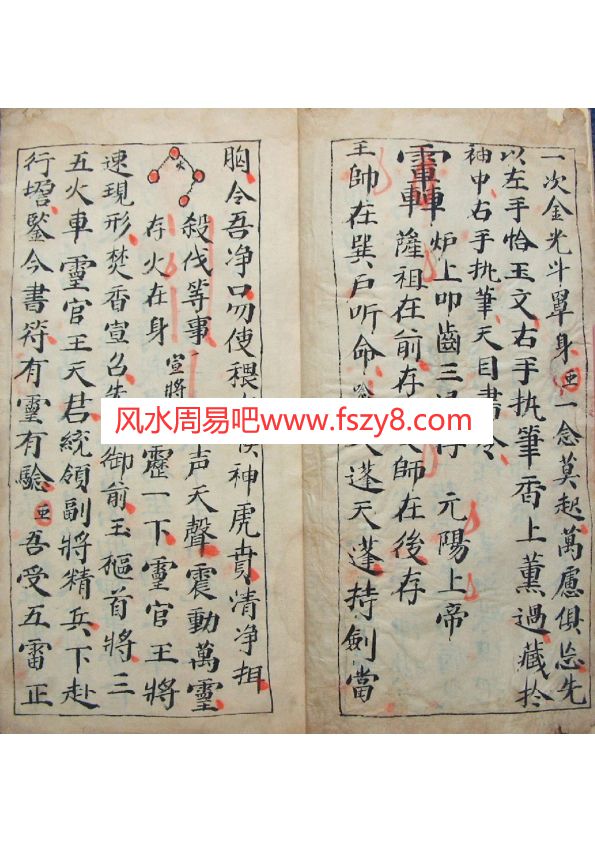 一次金光斗罩身亜一念莫起萬慮俱忘先
以左手恰玉文右手执筆香上薰過藏扵
袖中右手执筆天目書
炉上叩齒三 元陽上帝
薩祖在前存 師在後存
王帥在巽户听命 蓬天蓬持劍當
胸令吾净口勿使穢 神虎賁清净抯
殺伐等事 声天聲震動萬靈
存火在身 宣將 靂一下靈官王將
火
速現形焚香宣召 御前玉樞首將三
五火車靈官王天君統領副將精兵下赴
行壇鍳今書符有靈有驗亜吾受五雷正
风水周易吧www.fszy8.com